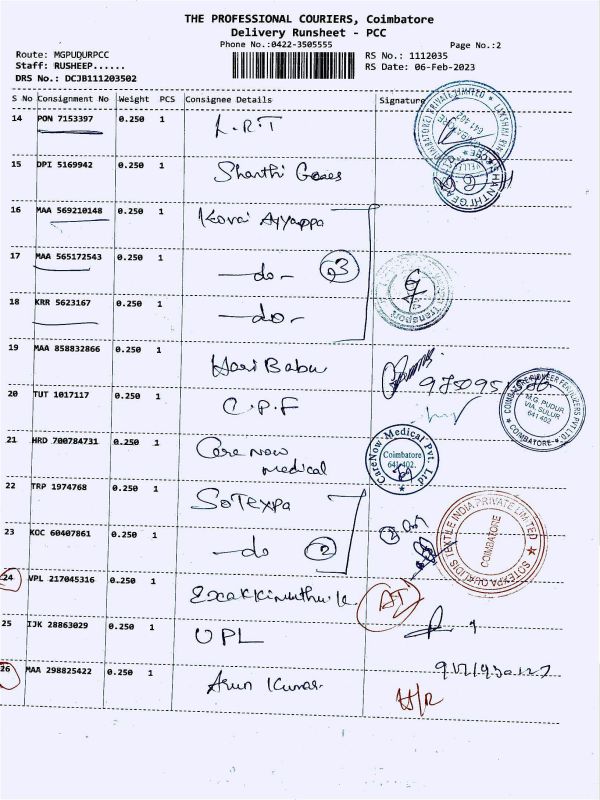 THE PROFESSIONAL COURIERS, Coimbatore
Delivery Runsheet - PCC
Phone No.:0422-3505555
Page No.:2
Route: MGPUDURPCC
Staff: RUSHEEP......
DRS No.: DCJB111203502
RS No.: 1112035
RS Date: 06-Feb-2023
S No Consignment No Weight PCS Consignee Details Signature
14 PON 7153397 0.250 1 L.R.T
15 DPI 5169942 0.250 1 Shanthi Gears
16 MAA 569210148 0.250 1 Kovai Ayyappa
17 MAA 565172543 0.250 1 -do- 3
18 KRR 5623167 0.250 1 -do-
Transport
19 MAA 858832866 0.250 1 Hari Babu
20 TUT 1017117 0.250 1 C.P.F
COIMBATORE PIONEER FERTILIZERS PVT LTD
M.G. PUDUR
VIA. SULUR
641 402
COIMBATORE
21 HRD 700784731 0.250 1 Care Now
medical
CareNow Medical Pvt. Ltd
Coimbatore
641 402.
22 TRP 1974768 0.250 1 SOTEXPA
23 KOC 60407861 0.250 1 -do 2
2
SOTEXPA QUALIDIS TEXTILE INDIA PRIVATE LIMITED
COIMBATORE
24 VPL 217045316 0.250 1
25 IJK 28863029 0.250 1 UPL
26 MAA 298825422 0.250 1 Arun Kumar
H/R